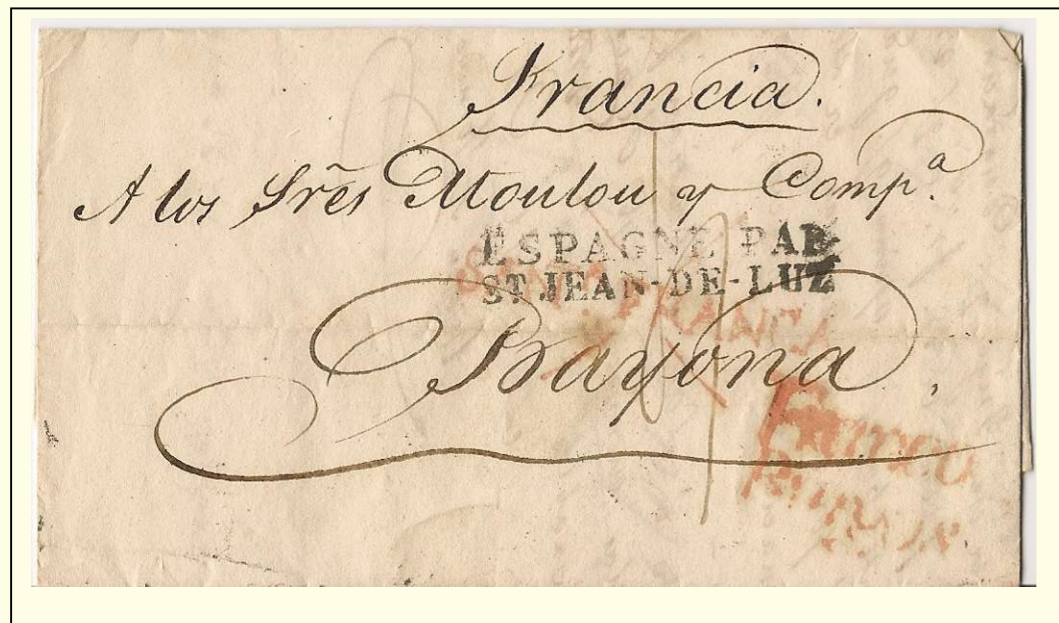 Francia.
A los Srẽs Moulou y Comp.ª
ESPAGNE PAR
ST JEAN-DE-LUZ
FRANCA
Bayona,
Franco